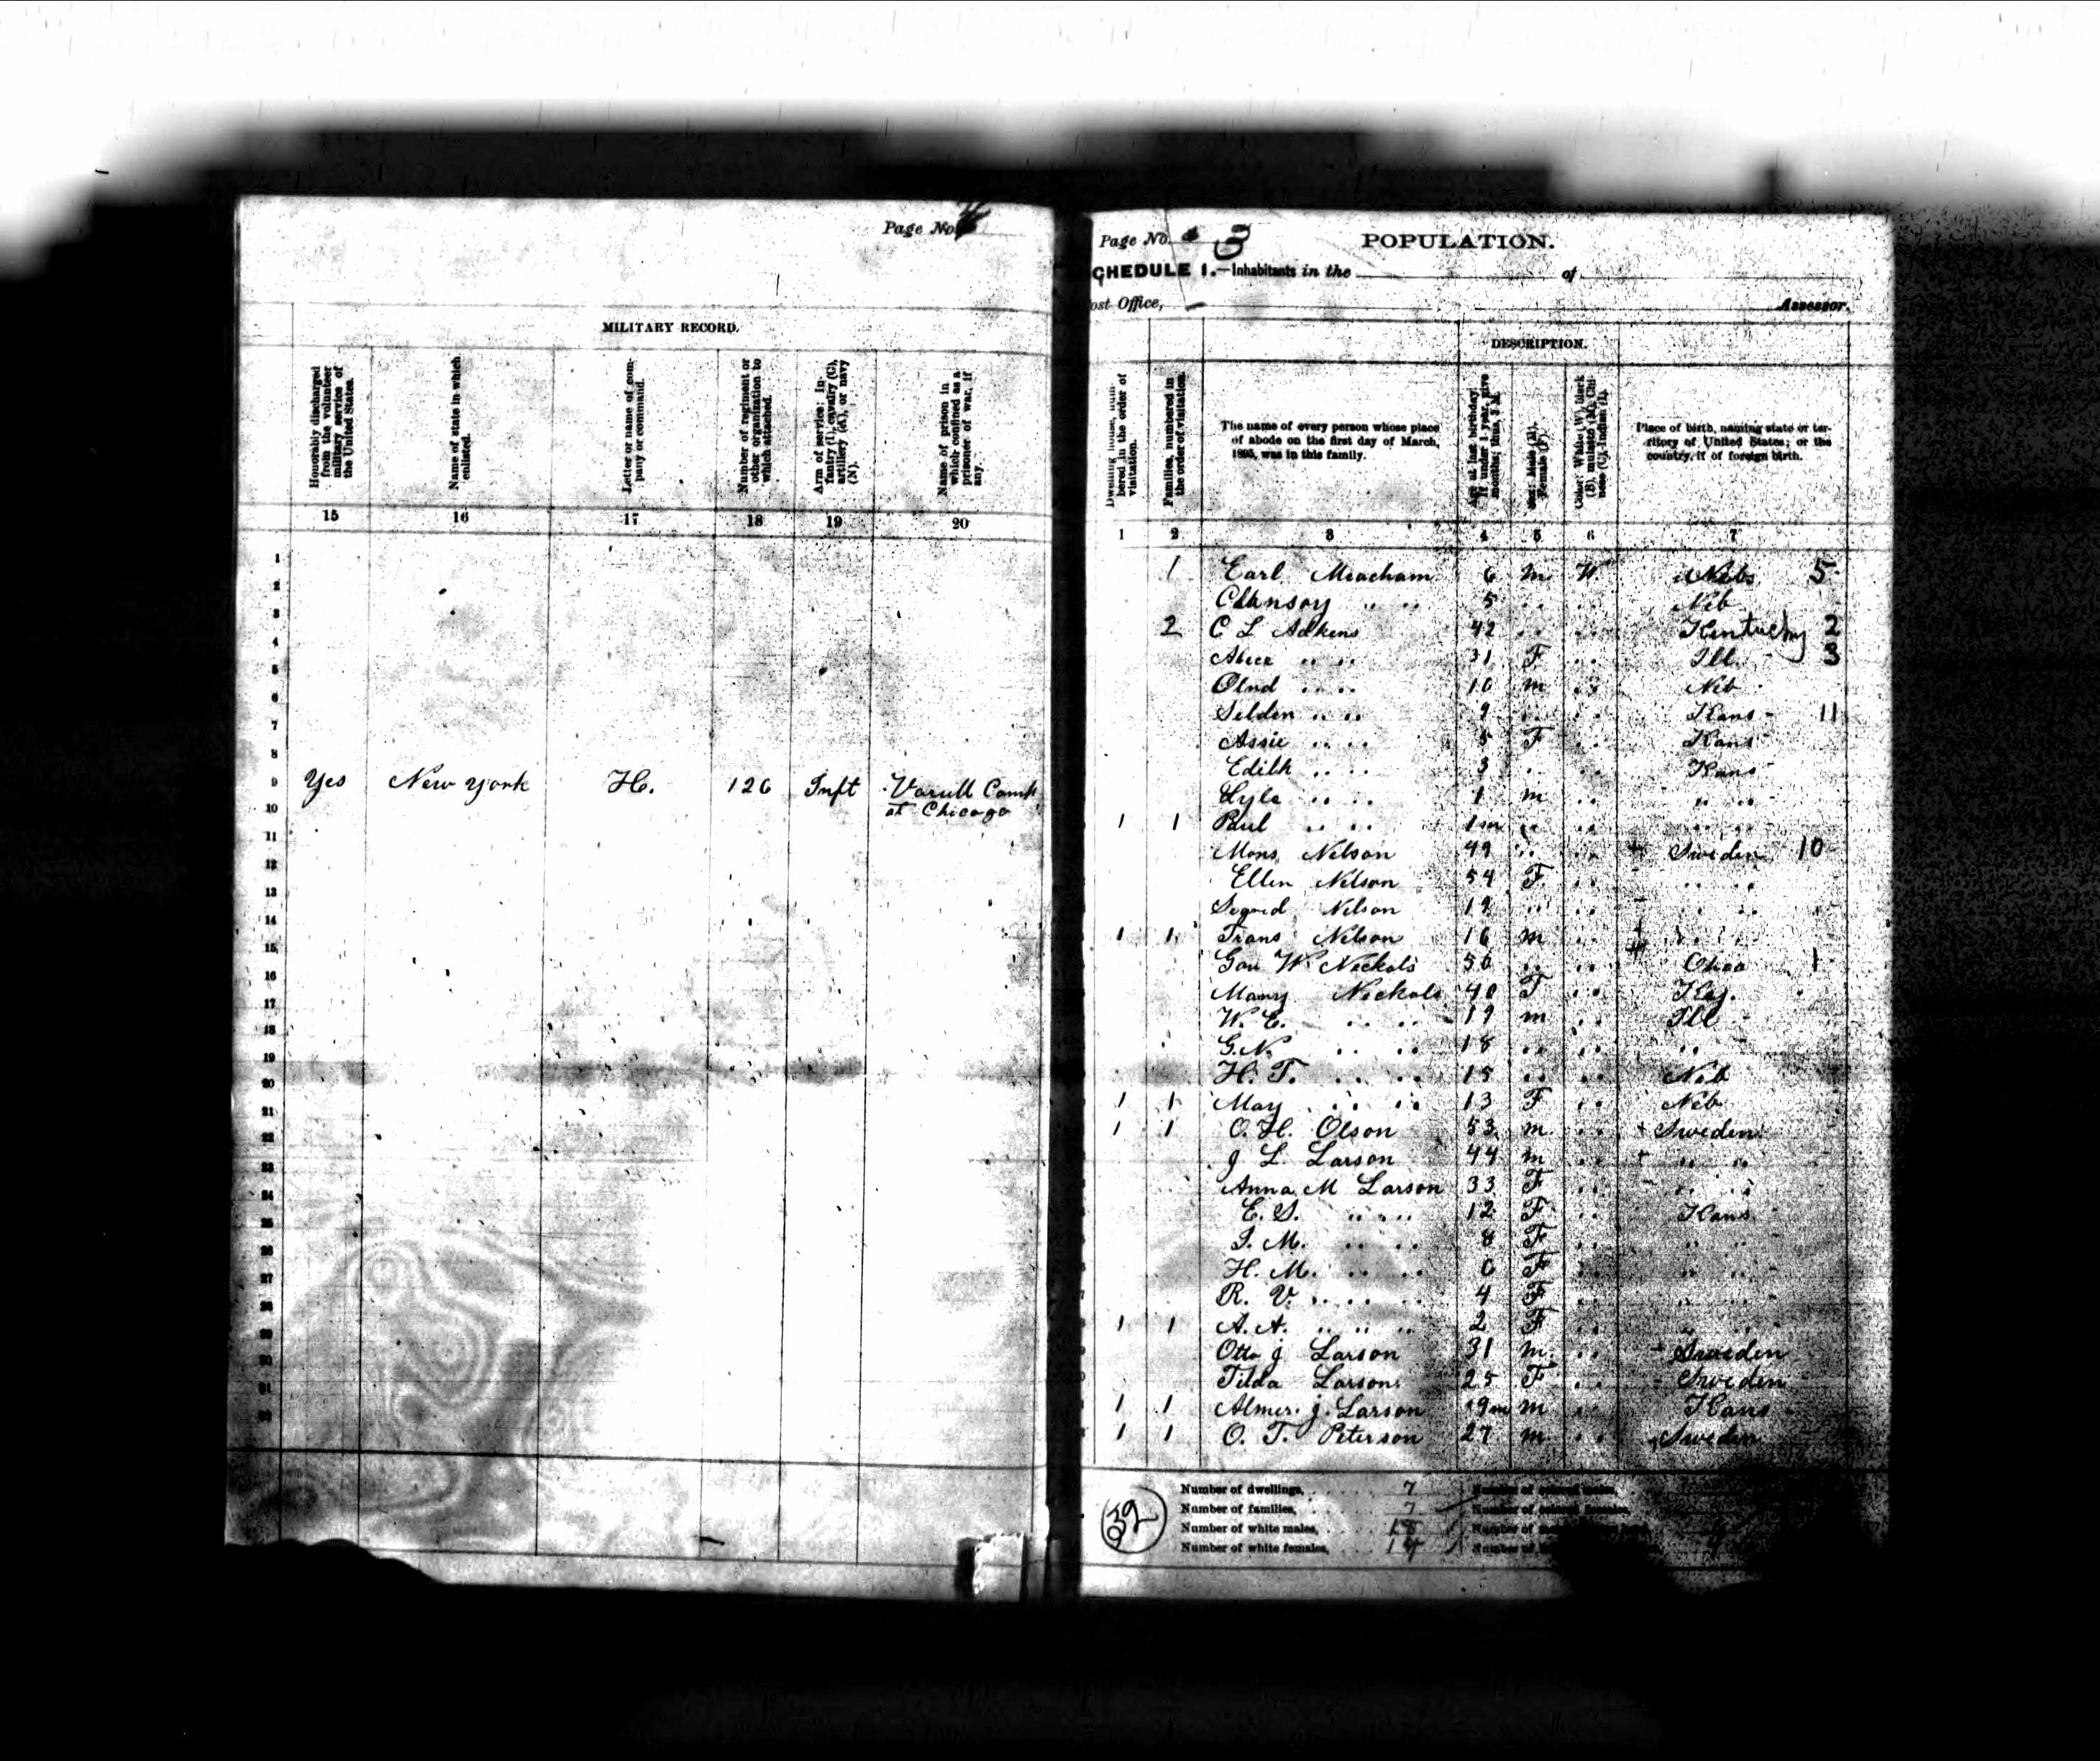 Page No.
MILITARY RECORD.
Honorably discharged from the volunteer military service of the United States.
Name of state in which enlisted.
Letter or name of company or command.
Number of regiment or other organization to which attached.
Arm of service: Infantry (I), cavalry (C), artillery (A), or navy (N).
Name of prison in which confined as a prisoner of war, if any.
15 16 17 18 19 20
1
2
3
4
5
6
7
8
9 Yes New York H. 126 Inft Camp
10 at Chicago
11
12
13
14
15
16
17
18
19
20
21
22
23
24
25
26
27
28
29
30
31
Page No. 3 POPULATION.
CHEDULE 1.—Inhabitants in the of
ost Office, Assessor.
DESCRIPTION.
Dwelling house, numbered in the order of visitation.
Families, numbered in the order of visitation.
The name of every person whose place
of abode on the first day of March,
1895, was in this family.
Age at last birthday. If under 1 year, give months; thus, 3 M.
Sex: Male (M), Female (F).
Color: White (W), black (B), mulatto (M), Chinese (C), Indian (I).
Place of birth, naming state or ter-
ritory of United States; or the
country, if of foreign birth.
1 2 3 4 5 6 7
1 Earl Meacham 6 m W. Neb 5
5 .. .. Neb
2 C L Adkens 42 .. .. Kentucky 2
Alice .. .. 31 F .. Ill 3
10 m .. Neb
Selden .. .. 9 .. .. Kans 11
Assie .. .. 5 F .. Kans
Edith .. .. 3 .. .. Kans
Lyle .. .. 1 m .. .. ..
1 1 Paul .. .. 1m .. .. .. ..
Mons Nelson 49 .. .. Sweden 10
Ellen Nelson 54 F .. .. ..
Nelson 19 .. .. .. ..
1 1 Frans Nelson 16 m .. .. ..
W. Nickols 50 .. .. 1
Mary Nickols 40 F .. Ky.
W. E. .. .. 19 m .. Ill
G. N. .. .. 18 .. .. ..
H. T. .. .. 15 .. .. Neb
1 1 May .. .. 13 F .. Neb
1 1 O. H. Olson 53 m .. Sweden
J L Larson 44 m .. .. ..
Anna M Larson 33 F .. .. ..
E. S. .. .. 12 F .. Kans
M. .. .. 8 F .. .. ..
H. M. .. .. 6 F .. .. ..
R. V. .. .. 4 F .. .. ..
1 1 A. A. .. .. .. 2 F .. .. ..
Otto J Larson 31 m .. Sweden
Tilda Larson 25 F .. Sweden
1 1 Almer. J. Larson 9m m .. Kans
1 1 O. T. Peterson 27 m .. Sweden
Number of dwellings, 7
Number of families, 7
Number of white males, 18
Number of white females, 14